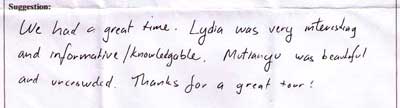 Suggestion:
We had a great time. Lydia was very interesting
and informative/knowledgable. Mutianyu was beautiful
and uncrowded. Thanks for a great tour!